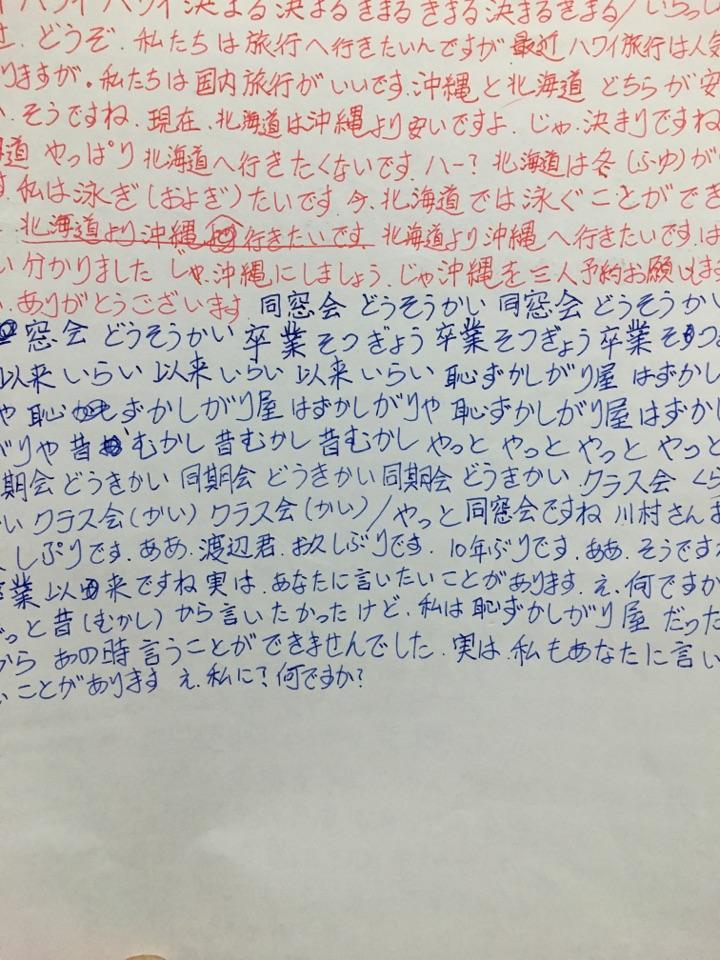 ハワイ ハワイ 決まる 決まる きまる きまる 決まるきまる/いらっし
せ. どうぞ. 私たちは旅行へ行きたいんですが 最近 ハワイ旅行は人気
りますが. 私たちは国内旅行がいいです. 沖縄と北海道 どちらが安
. そうですね. 現在. 北海道は沖縄より安いですよ. じゃ. 決まりですね
道 やっぱり 北海道へ行きたくないです. ハー? 北海道は冬(ふゆ)が
す. 私は泳ぎ(およぎ)たいです. 今. 北海道では泳ぐことができ
. 北海道より沖縄 行きたいです 北海道より沖縄へ行きたいです. は
い 分かりました じゃ. 沖縄にしましょう. じゃ沖縄を三人予約お願いしま
. ありがとうございます 同窓会 どうそうかい 同窓会 どうそうかい
窓会 どうそうかい 卒業 そつぎょう 卒業 そつぎょう 卒業 そつ
以来 いらい 以来 いらい 以来 いらい 恥ずかしがり屋 はずかし
や 恥ずかしがり屋 はずかしがりや 恥ずかしがり屋 はずか
がりや 昔 むかし 昔むかし 昔むかし やっと やっと やっと やっと
同期会 どうきかい 同期会 どうきかい 同期会 どうきかい クラス会 くら
い クラス会(かい) クラス会(かい)/やっと同窓会ですね 川村さん お
しぶりです. ああ. 渡辺君. お久しぶりです. 10年ぶりです. ああ. そうです
卒業 以来ですね 実は. あなたに言いたいことがあります. え. 何ですか
っと 昔(むかし)から言いたかったけど. 私は恥ずかしがり屋 だった
から あの時 言うことができませんでした. 実は. 私もあなたに言い
いことがあります え. 私に? 何ですか?